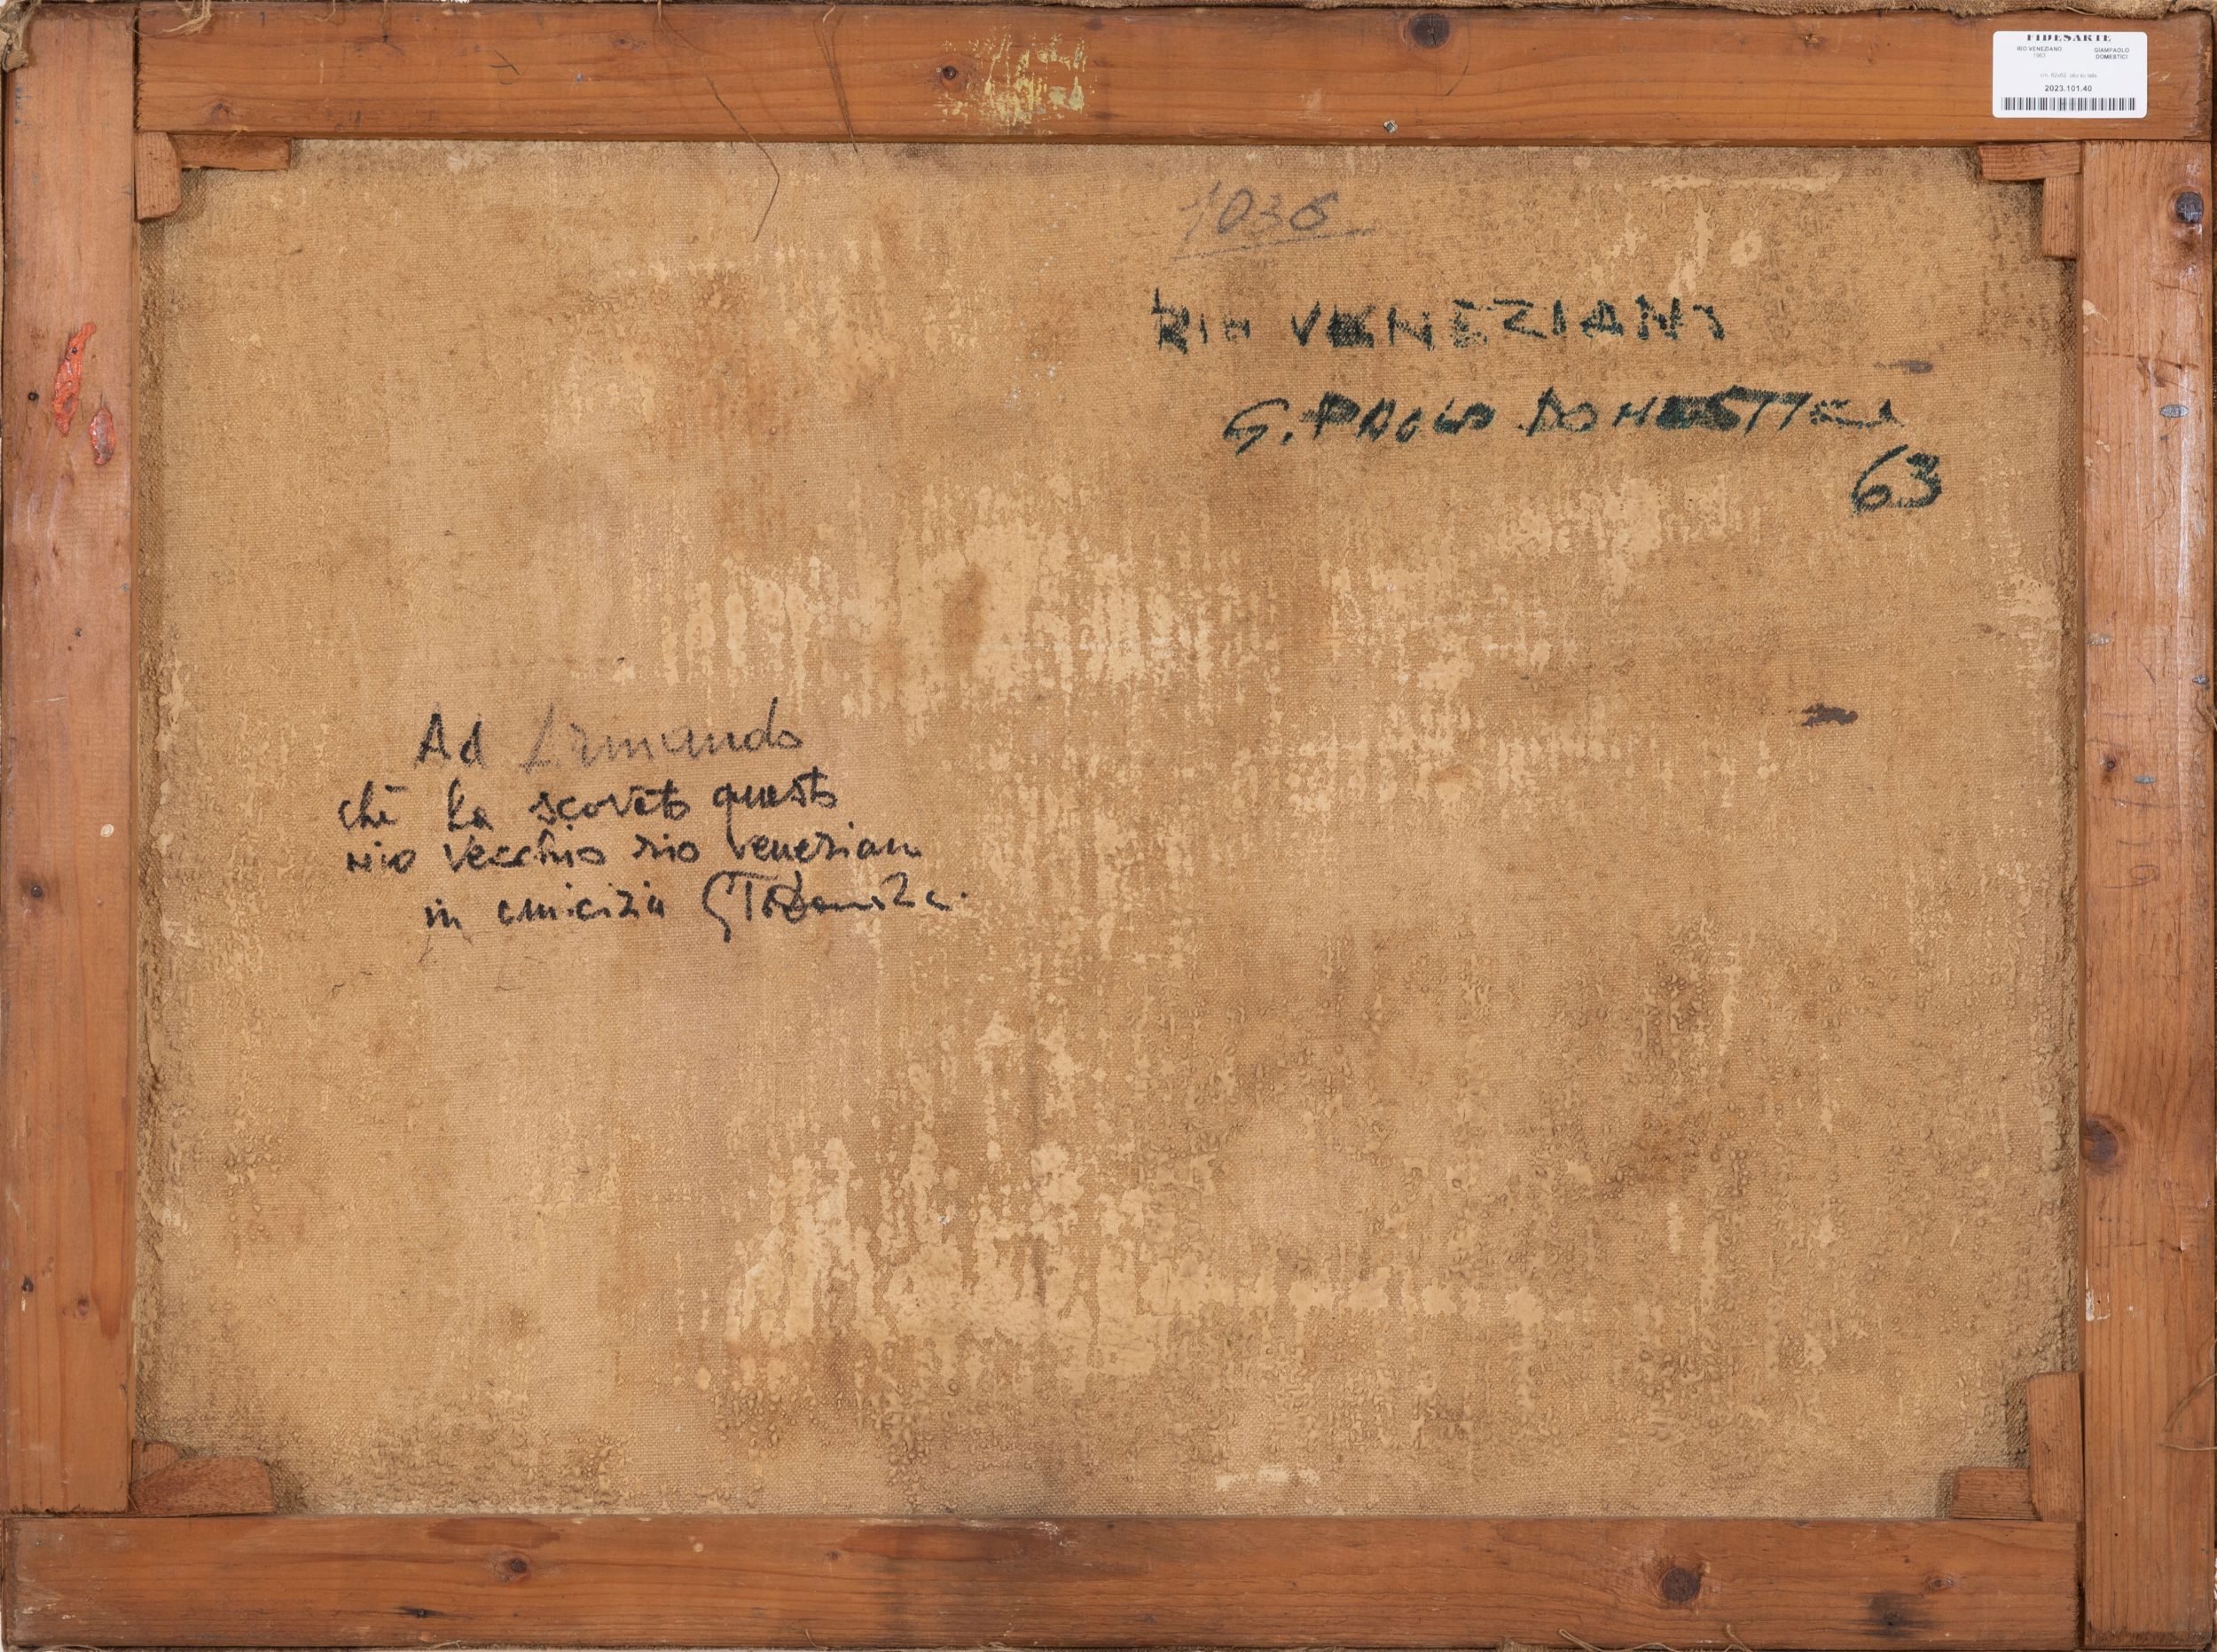 FIDESARTE
RIO VENEZIANO GIAMPAOLO
1963 DOMESTICI
2023.101.40
1036
RIO VENEZIANO
G. PAOLO DOMESTICI
63
Ad Armando
che ha scovato questo
mio vecchio rio veneziano
in amicizia